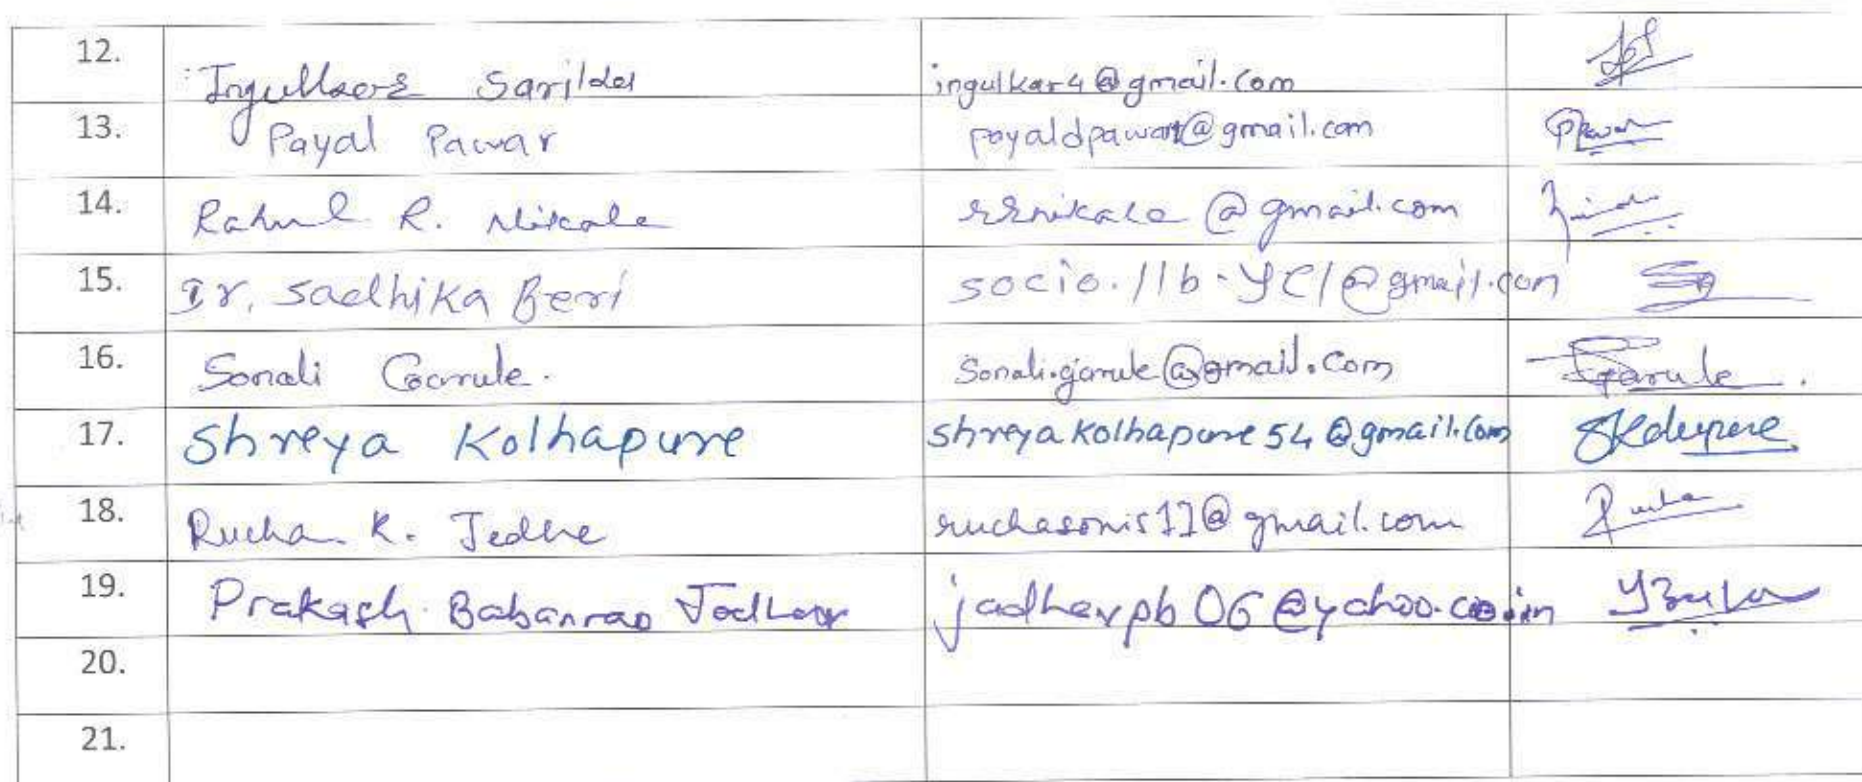 12. Sarilda ingulkar4@gmail.com
13. Payal Pawar payaldpawar@gmail.com
14. Rahul R. Nikale rrnikale@gmail.com
15. Dr. Sadhika Beri socio.11b.yc1@gmail.com
16. Sonali Garule. sonali.garule@gmail.com Garule.
17. Shreya Kolhapure shreyakolhapure54@gmail.com
18. Rucha K. Jedhe ruchasonis11@gmail.com Rucha
19. Prakash Babanrao Jadhav jadhavpb06@yahoo.co.in
20.
21.